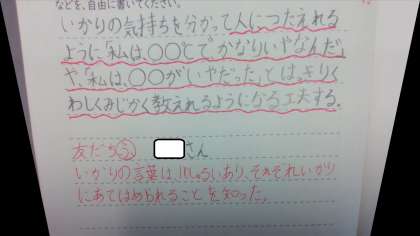 などを、自由に書いてください。
いかりの気持ちを分かって人につたえれる
ように「私は〇〇とで、かなりいやなんだ」
や、「私は、〇〇がいやだった」とはっきりく
わしくみじかく教えれるようになる工夫する。
友だち②
さん
いかりの言葉は10しゅるいあり、それぞれいかり
にあてはめられることを知った。